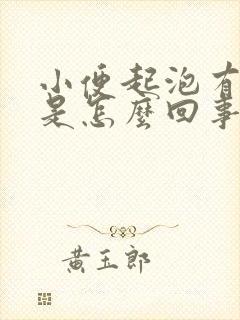 小便起泡有
是怎麼回事
黃玉郎